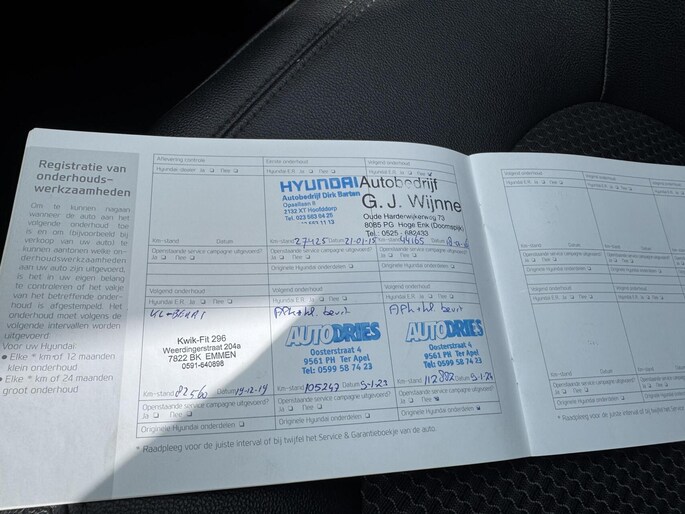 Registratie van
onderhouds-
werkzaamheden
Om te kunnen nagaan
wanneer de auto aan het
volgende onderhoud toe
is en om (bijvoorbeeld bij
verkoop van uw auto) te
kunnen aantonen welke on-
derhoudswerkzaamheden
aan uw auto zijn uitgevoerd,
is het in uw eigen belang
te controleren of het vakje
van het betreffende onder-
houd is afgestempeld. Het
onderhoud moet volgens de
volgende intervallen worden
uitgevoerd
Voor uw Hyundai:
• Elke * km of 12 maanden
klein onderhoud
• Elke * km of 24 maanden
groot onderhoud
Aflevering controle
Hyundai-dealer Ja Nee
Km-stand Datum
Openstaande service campagne uitgevoerd?
Ja Nee
Eerste onderhoud
Hyundai E.R. Ja Nee
HYUNDAI
Autobedrijf Dirk Barten
Opaallaan 6
2132 XT Hoofddorp
Tel. 023 563 64 25
Km-stand 27425 Datum 21-01-15
Openstaande service campagne uitgevoerd?
Ja Nee
Originele Hyundai onderdelen
Volgend onderhoud
Hyundai E.R. Ja Nee
Autobedrijf
G. J. Wijnne
Oude Harderwijkerweg 73
8085 PG Hoge Enk (Doornspijk)
Tel.: 0525 - 682433
Km-stand 44165 Datum
Openstaande service campagne uitgevoerd?
Ja Nee
Originele Hyundai onderdelen
Volgend onderhoud
Hyundai E.R. Ja Nee
KL-BEURT
Kwik-Fit 296
Weerdingerstraat 204a
7822 BK EMMEN
0591-640898
Km-stand 82560 Datum 19-12-19
Openstaande service campagne uitgevoerd?
Ja Nee
Originele Hyundai onderdelen
Volgend onderhoud
Hyundai E.R. Ja Nee
APK + kl. beurt
AUTODRIES
Oosterstraat 4
9561 PH Ter Apel
Tel: 0599 58 74 23
Km-stand 105243 Datum 5-1-23
Openstaande service campagne uitgevoerd?
Ja Nee
Originele Hyundai onderdelen
Volgend onderhoud
Hyundai E.R. Ja Nee
APK + kl. beurt
AUTODRIES
Oosterstraat 4
9561 PH Ter Apel
Tel: 0599 58 74 23
Km-stand 112882 Datum 5-1-24
Openstaande service campagne uitgevoerd?
Ja Nee
Originele Hyundai onderdelen
* Raadpleeg voor de juiste interval of bij twijfel het Service & Garantieboekje van de auto.
Volgend onderhoud
Hyundai E.R. Ja Nee
Km-stand Datum
Openstaande service campagne uitgevoerd?
Ja Nee
Originele Hyundai onderdelen
Volgend onderhoud
Hyundai E.R. Ja Nee
Km-stand Datum
Openstaande service campagne uitgevoerd?
Ja Nee
Originele Hyundai onderdelen
* Raadpleeg voor de juiste interval of bij twijfel